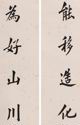 能移造化
為好山川